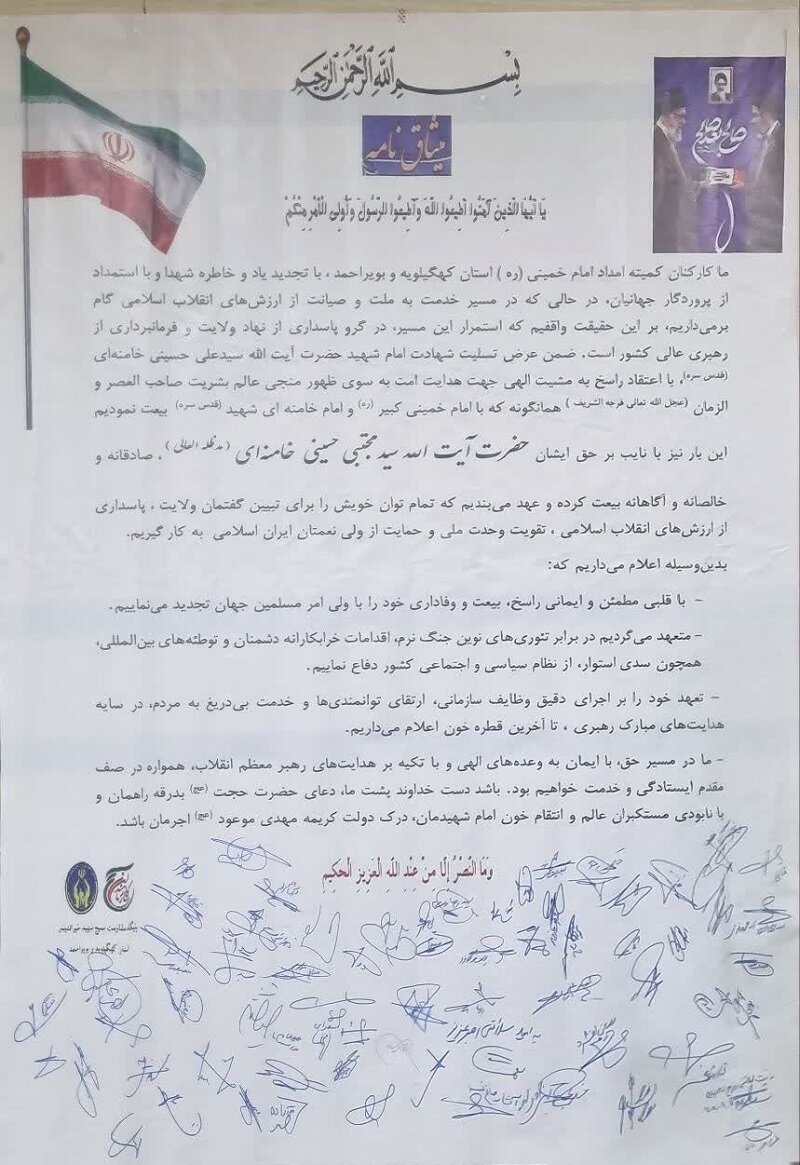 بِسْمِ اللَّهِ الرَّحْمَٰنِ الرَّحِيمِ
میثاق نامه
صالح بعد صالح
يَا أَيُّهَا الَّذِينَ آمَنُوا أَطِيعُوا اللَّهَ وَأَطِيعُوا الرَّسُولَ وَأُولِي الْأَمْرِ مِنْكُمْ
ما کارکنان کمیته امداد امام خمینی (ره) استان کهگیلویه و بویراحمد ، با تجدید یاد و خاطره شهدا و با استمداد
از پروردگار جهانیان، در حالی که در مسیر خدمت به ملت و صیانت از ارزش‌های انقلاب اسلامی گام
برمی‌داریم، بر این حقیقت واقفیم که استمرار این مسیر، در گرو پاسداری از نهاد ولایت و فرمانبرداری از
رهبری عالی کشور است. ضمن عرض تسلیت شهادت امام شهید حضرت آیت الله سیدعلی حسینی خامنه‌ای
(قدس سره)، با اعتقاد راسخ به مشیت الهی جهت هدایت امت به سوی ظهور منجی عالم بشریت صاحب العصر و
الزمان (عجل الله تعالی فرجه الشریف) همانگونه که با امام خمینی کبیر (ره) و امام خامنه ای شهید (قدس سره) بیعت نمودیم
این بار نیز با نایب بر حق ایشان حضرت آیت الله سید مجتبی حسینی خامنه‌ای (مدظله العالی) ، صادقانه و
خالصانه و آگاهانه بیعت کرده و عهد می‌بندیم که تمام توان خویش را برای تبیین گفتمان ولایت ، پاسداری
از ارزش‌های انقلاب اسلامی ، تقویت وحدت ملی و حمایت از ولی نعمتان ایران اسلامی به کار گیریم.
بدین‌وسیله اعلام می‌داریم که:
- با قلبی مطمئن و ایمانی راسخ، بیعت و وفاداری خود را با ولی امر مسلمین جهان تجدید می‌نماییم.
- متعهد می‌گردیم در برابر تئوری‌های نوین جنگ نرم، اقدامات خرابکارانه دشمنان و توطئه‌های بین‌المللی،
همچون سدی استوار، از نظام سیاسی و اجتماعی کشور دفاع نماییم.
- تعهد خود را بر اجرای دقیق وظایف سازمانی، ارتقای توانمندی‌ها و خدمت بی‌دریغ به مردم، در سایه
هدایت‌های مبارک رهبری ، تا آخرین قطره خون اعلام می‌داریم.
- ما در مسیر حق، با ایمان به وعده‌های الهی و با تکیه بر هدایت‌های رهبر معظم انقلاب، همواره در صف
مقدم ایستادگی و خدمت خواهیم بود. باشد دست خداوند پشت ما، دعای حضرت حجت (عج) بدرقه راهمان و
با نابودی مستکبران عالم و انتقام خون امام شهیدمان، درک دولت کریمه مهدی موعود (عج) اجرمان باشد.
وَمَا النَّصْرُ إِلَّا مِنْ عِنْدِ اللَّهِ الْعَزِيزِ الْحَكِيمِ
استان کهگیلویه و بویراحمد